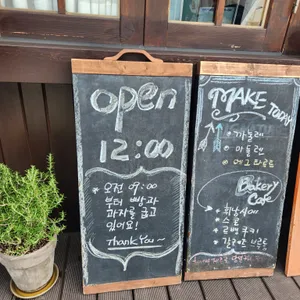 open
12:00
* 오전 09:00
부터 빵과
과자를 굽고
있어요!
Thank You~
MAKE
TODAY
* 까눌레
* 마들렌
* 에그타르트
Bakery
Cafe
* 휘낭시에
* 스콘
* 르뱅쿠키